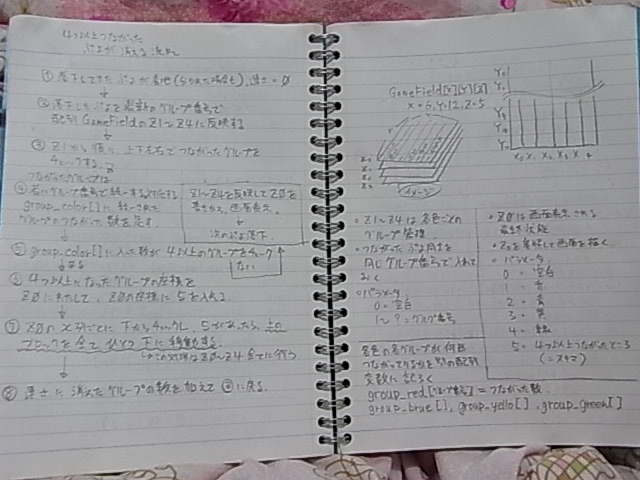 4つ以上つながった
ぷよが消える流れ
① 落下してきたぷよが着地(分かれた場合も)、連さ=0
② 落下したぷよを最新のグループ番号で
配列GameFieldのZ1〜Z4に反映する
③ Z1から順に、上下左右でつながったグループを
チェックする。
つながったグループは
④ 若いグループ番号で統一する
group_color[]に統一された
グループのつながった数を足す
Z1〜Z4を反映してZ0を
書きかえ、画面表示。
次のぷよ落下。
⑤ group_color[]に入った数が4以上のグループをチェック
ある
ない
⑥ 4つ以上になったグループの座標を
Z0にわたして、Z0の座標に5を入れる
⑦ Z0のX列ごとに下からチェックし、5があったら、上の
ブロックを全てひとつ下に移動する。
この処理はZ0〜Z4全てに行う
⑧ 連さに消えたグループの数を加えて③に戻る。
GameField[X][Y][Z]
X=6, Y=12, Z=5
イメージ
・Z1〜Z4は各色ごとの
グループ管理
・つながったぷよ同士を
同じグループ番号で入れて
おく
・パラメータ
0=空白
1〜?=グループ番号
・Z0は画面表示される
最終状態
・Z0を参照して画面を描く。
・パラメータ
0=空白
1=赤
2=青
3=黄
4=緑
5=4つ以上つながったところ
各色の各グループが何個
つながってるかを別の配列
変数に記ろく
group_red[グループ番号]=つながった数
group_brue[], group_yello[], group_green[]